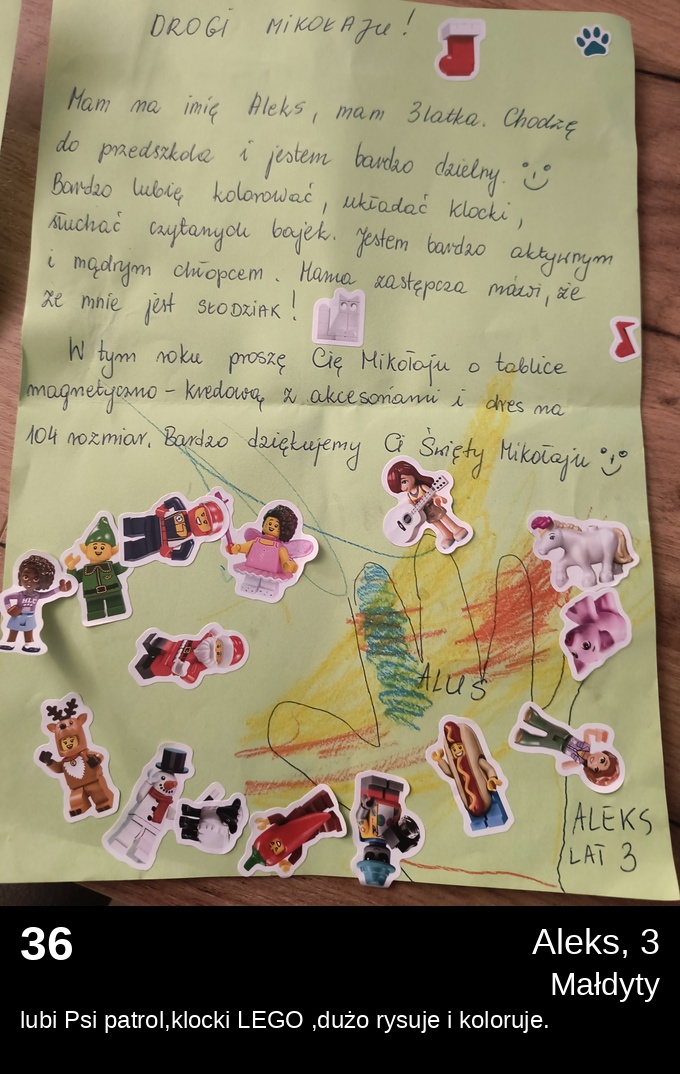 DROGI MIKOŁAJu!
Mam na imię Aleks, mam 3latka. Chodzę
do przedszkola i jestem bardzo dzielny.
Bardzo lubię kolorować, układać klocki,
słuchać czytanych bajek. Jestem bardzo aktywnym
i mądrym chłopcem. Mama zastępcza mówi, że
że mnie jest SŁODZIAK!
W tym roku proszę Cię Mikołaju o tablice
magnetyczno - kredową z akcesoriami i dres na
104 rozmiar. Bardzo dziękujemy Ci Święty Mikołaju
ALUŚ
ALEKS
LAT 3
36
Aleks, 3
Małdyty
lubi Psi patrol,klocki LEGO ,dużo rysuje i koloruje.